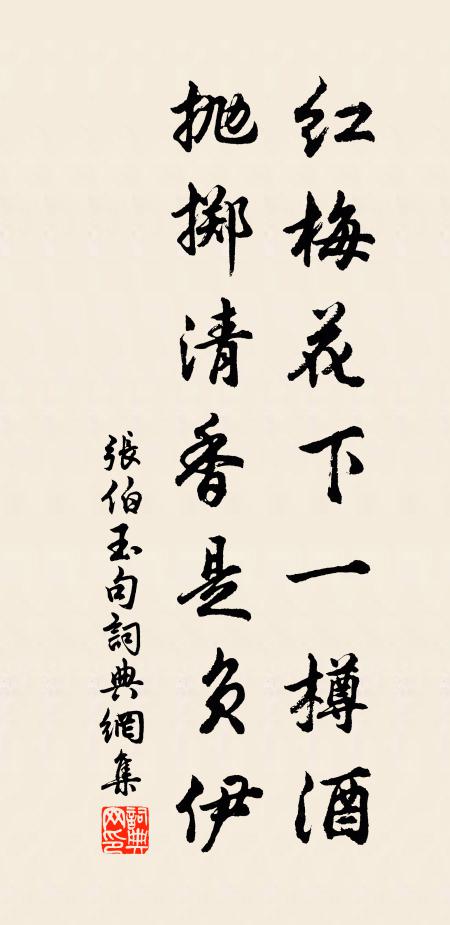 红梅花下一樽酒
抛掷清香是负伊
張伯玉句詞典網集
詞典网印